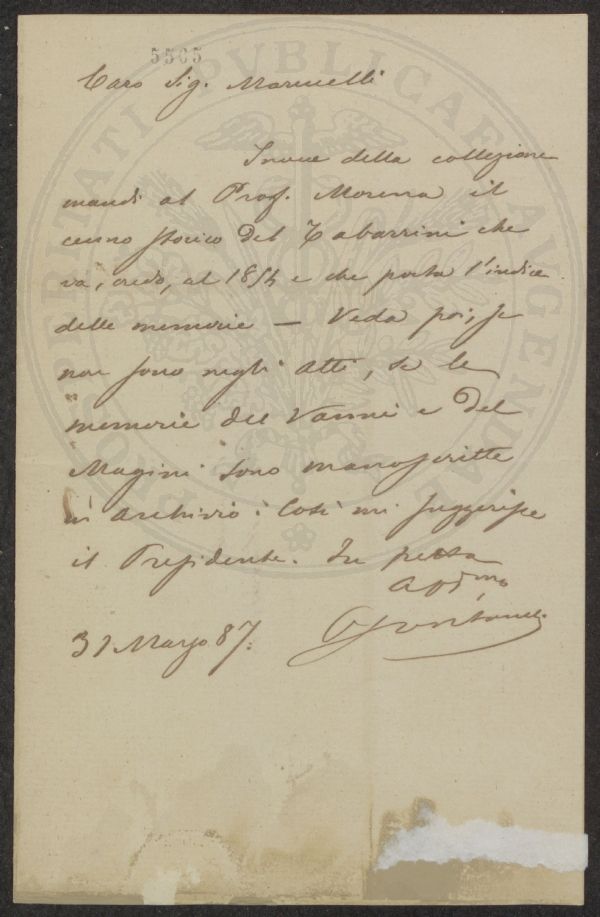 5505
PROSPERITATI PVBLICAE AVGENDAE
Caro Sig. Marucelli
Invece della collezione
mandi al Prof. Morena il
cenno storico del Tabarrini che
va, credo, al 1854 e che porta l'indice
delle memorie — Veda poi, se
non sono negli atti, se le
memorie del Vanni e del
Magini sono manoscritte
in archivio: Così mi suggerisce
il Presidente. In fretta
31 Marzo 87: